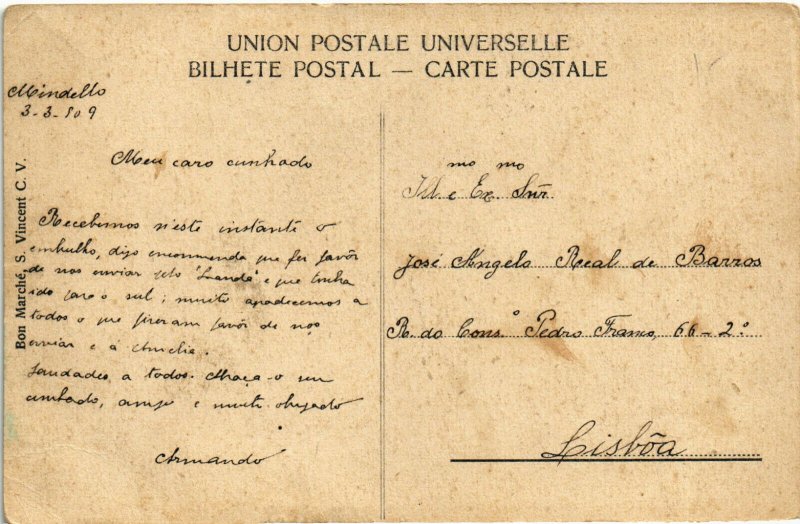 UNION POSTALE UNIVERSELLE
BILHETE POSTAL — CARTE POSTALE
Bon Marché, S. Vincent C. V.
Mindello
3-3-909
Meu caro cunhado
Recebemos n'este instante o
embrulho, digo encommenda que fez favôr
de nos enviar pelo "Loanda" e que tinha
ido para o sul; muito agradecemos a
todos o que fizeram favôr de nos
enviar e á Amelia.
Saudades a todos. Abraça-o seu
cunhado, amigo e muito obrigado
Armando
mo mo
Ill e Ex. Snr.
José Angelo Real de Barros
R. do Cons.º Pedro Franco, 66-2º
Lisbôa